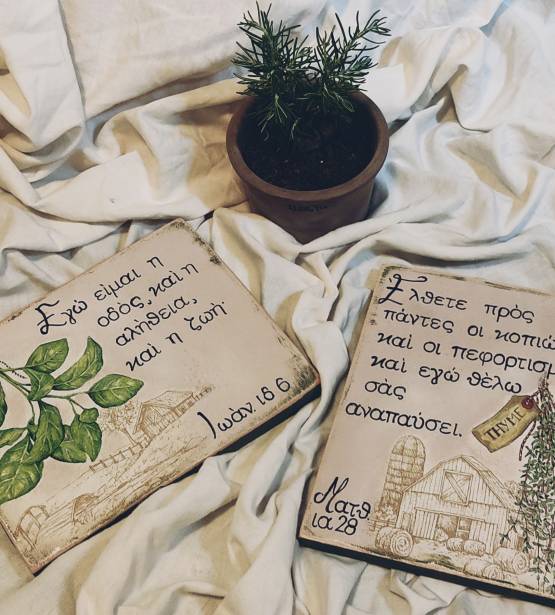 Εγώ είμαι η
οδός, καί η
αλήθεια,
καί η ζωή·
Ιωάν. ιδ 6
Έλθετε πρός
πάντες οι κοπιώ
καί οι πεφορτισμ
καί εγώ θέλω
σάς
αναπαύσει.
THYME
Ματθ.
ια 28